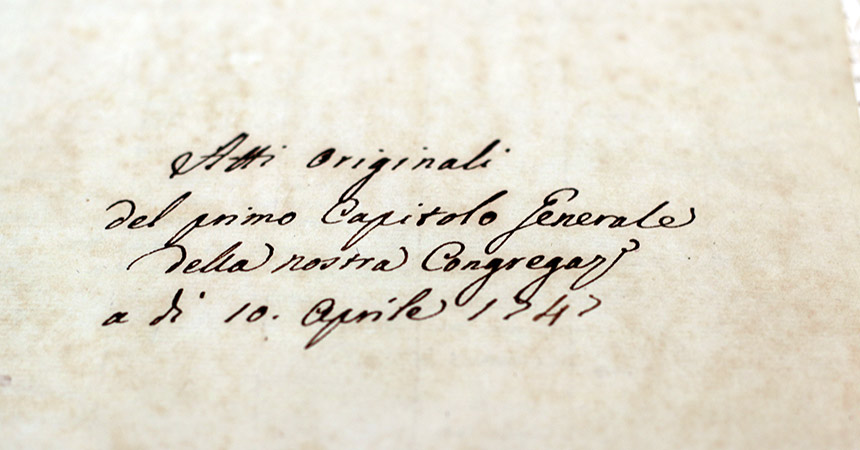 Atti originali
del primo Capitolo Generale
della nostra Congregaz.e
a di 10. Aprile 1747